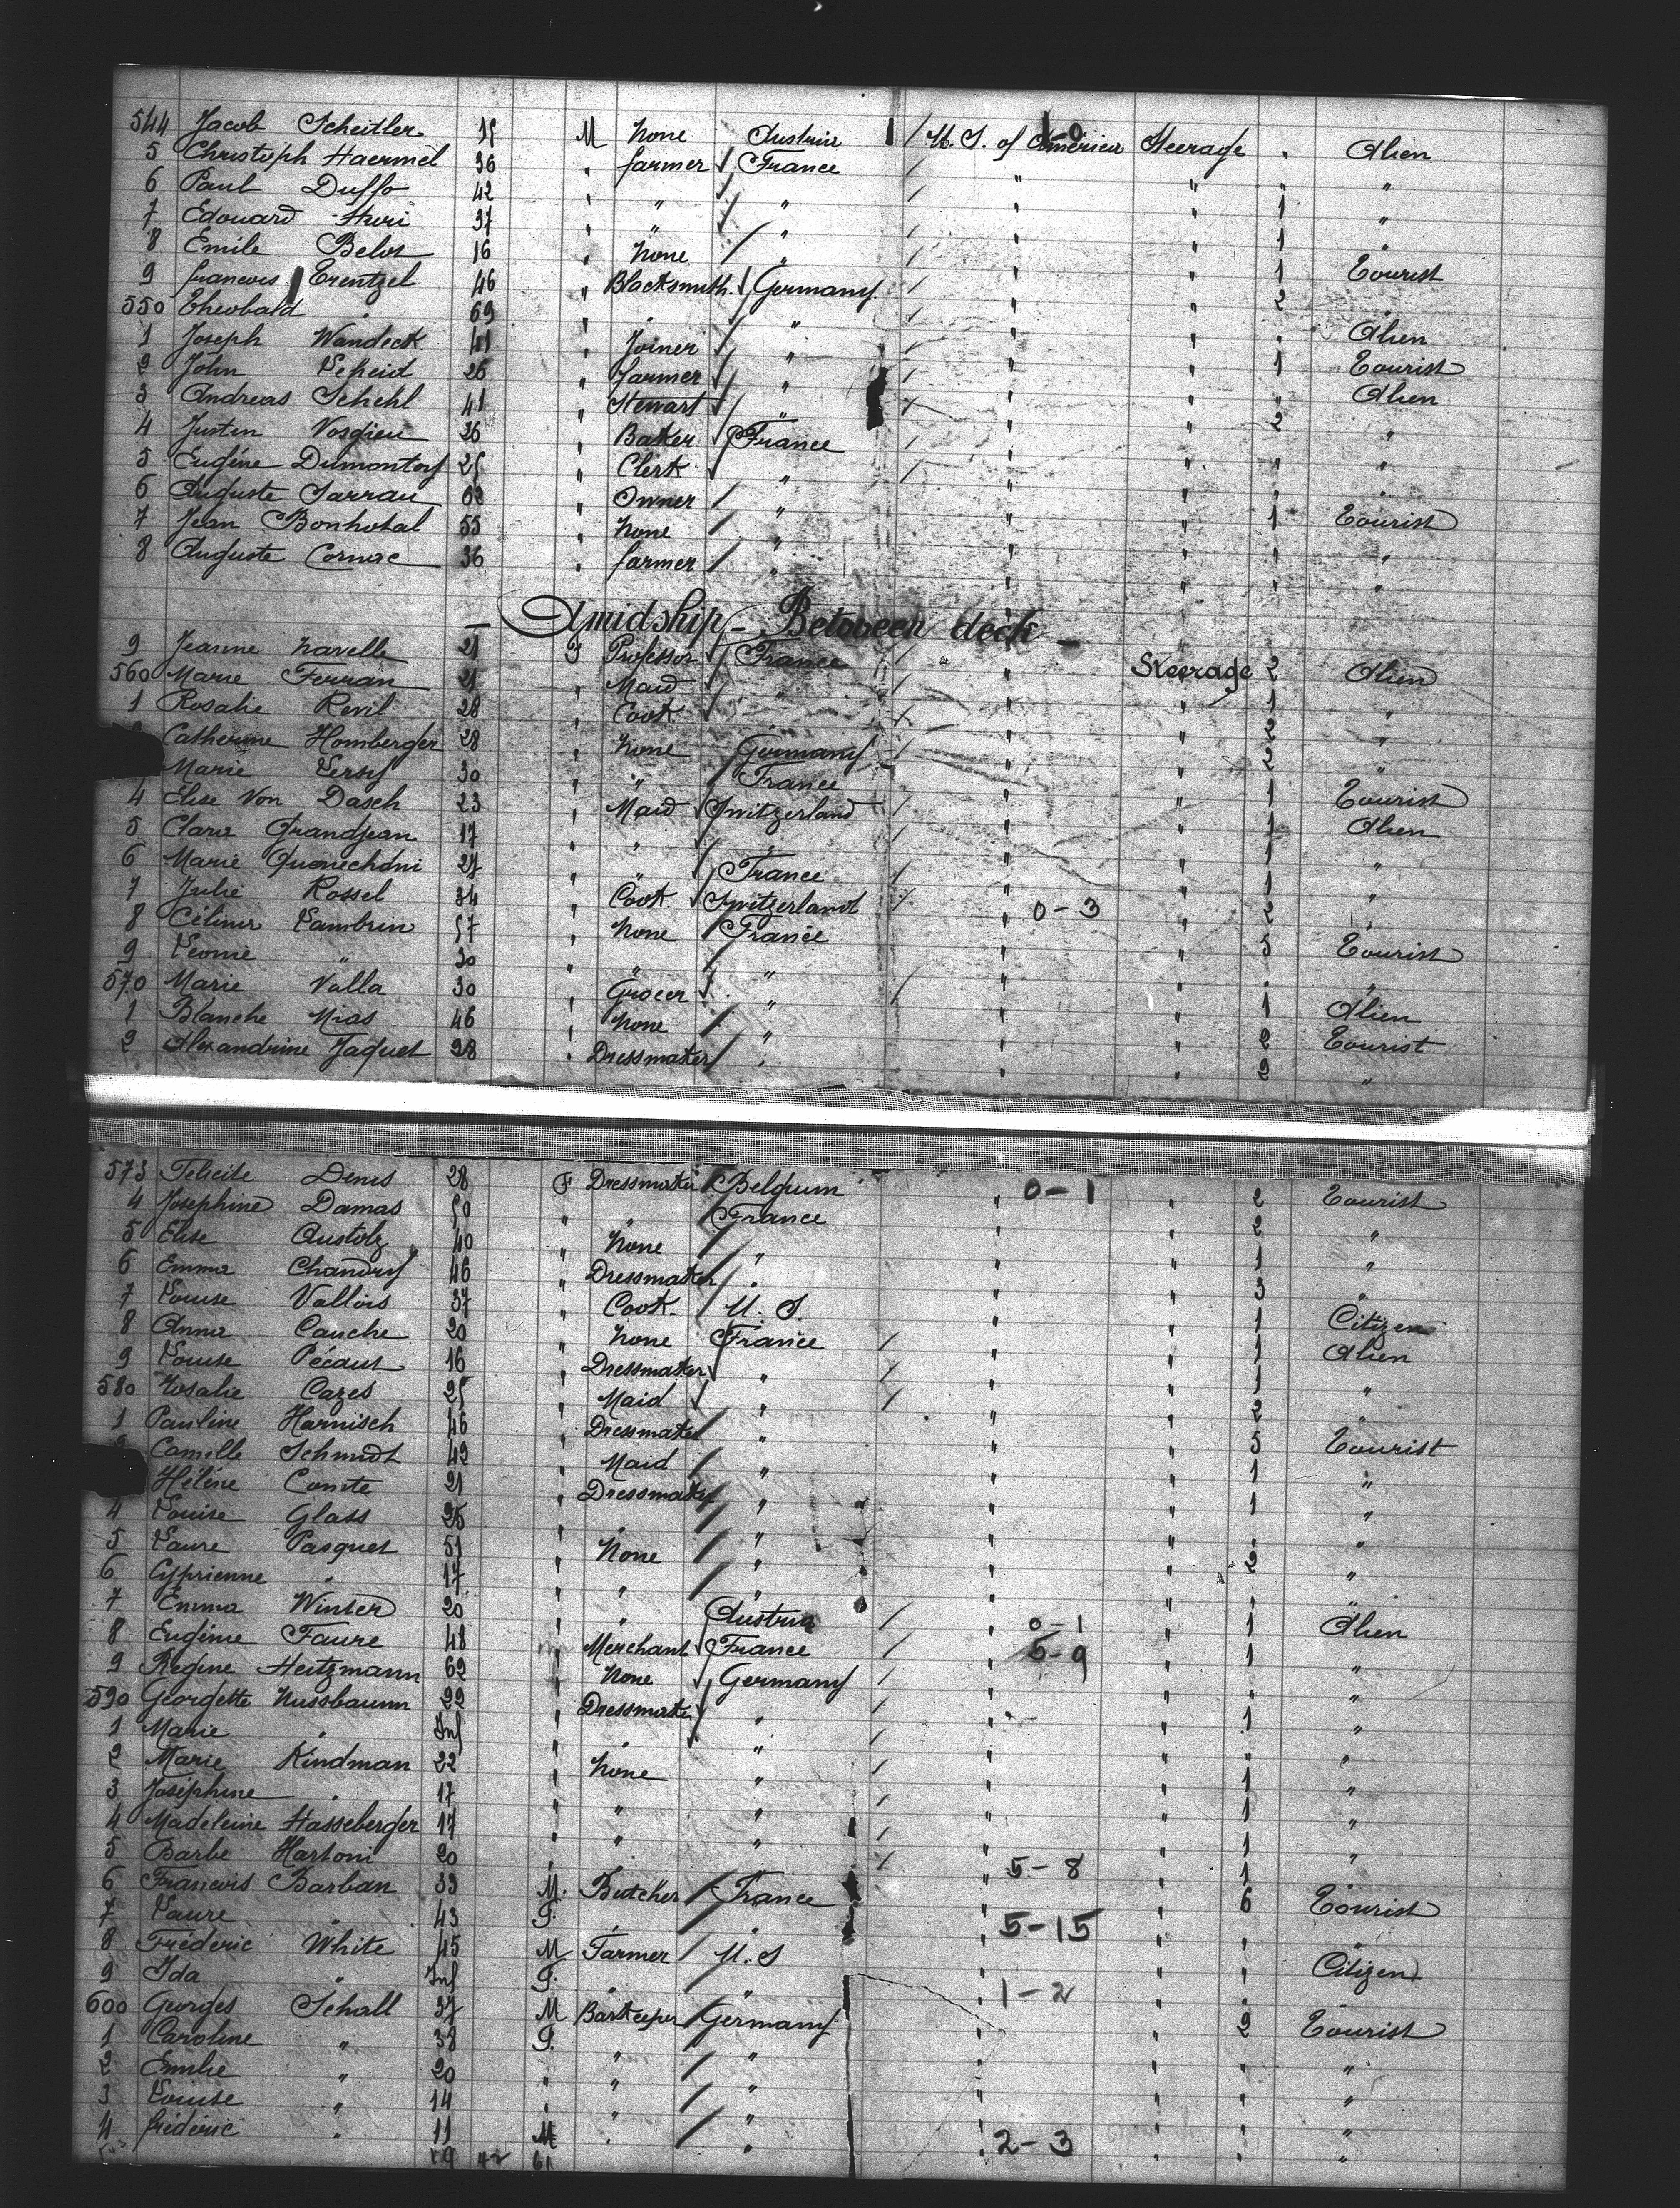 544 Jacob Scheitler 15 M None Austria / U. S. of America Steerage " Alien
5 Christoph Haermel 36 " farmer France / " " " "
6 Paul Duffo 42 " " " / " " 1 "
7 Edouard Huri 37 " " " / " " 1 "
8 Emile Belot 16 " None " " " 1 Tourist
9 francois Erentzel 46 " Blacksmith Germany / " " 2 "
550 Theobald " 69 " " " / " " " Alien
1 Joseph Wandeck 41 " Joiner " / " " 1 Tourist
2 John Scheid 26 " farmer " / " " " Alien
3 Andreas Schehl 41 " Stewart " / " " 2 "
4 Justin Vosgien 36 " Baker France / " " " "
5 Eugène 25 " Clerk " / " " " "
6 Auguste Sarrau 62 " Owner " " " 1 Tourist
7 Jean Bonhotal 55 " None " " " 1 "
8 Auguste Cornac 36 " farmer " " " " "
— Amidship – Between deck —
9 Jeanne Navelle 21 F Professor France / " Steerage 2 Alien
560 Marie Ferran 21 " Maid " / " " 1 "
1 Rosalie Revil 28 " Cook " / " " 2 "
Catherine Homberger 28 " None Germany " " 2 "
Marie Versy 30 " " France " " 1 Tourist
4 Elise Von Dasch 23 " Maid Switzerland / " " 1 Alien
5 Clara Grandjean 17 " " " / " " 1 "
6 Marie 27 " " France " " 1 "
7 Julie Rossel 34 " Cook Switzerland / 0-3 " 2 "
8 Célina Lambrin 57 " None France " " 5 Tourist
9 Leonie " 30 " " " " " " "
570 Marie Valla 30 " Grocer " / " " 1 Alien
1 Blanche Mias 46 " None " " " 2 Tourist
2 Alexandrine Jaquet 28 " Dressmaker " " " 2 "
573 Felicite Denis 28 F Dressmaker Belgium 0-1 " 2 Tourist
4 Josephine Damas 50 " " France " " 2 "
5 Elise 40 " None " " " 1 "
6 Emma Chandry 46 " Dressmaker " " " 3 "
7 Louise Vallois 37 " Cook U. S. " " 1 Citizen
8 Anna Cauche 20 " None France / " " 1 Alien
9 Louise Pécaut 16 " Dressmaker " / " " 1 "
580 Rosalie Cazes 25 " Maid " / " " 2 "
1 Pauline Harnisch 46 " Dressmaker " " " 5 Tourist
Camille Schmidt 42 " Maid " " " 1 "
Hélène Comte 21 " Dressmaker " " " 1 "
4 Louise Glass 25 " " " " " " "
5 Laure Pasquet 51 " None " " " 2 "
6 Cyprienne " 17 " " " " " " "
7 Emma Winter 20 " " Austria / 0-1 " 1 Alien
8 Eugénie Faure 48 " Merchant France / 5-9 " 1 "
9 Regine Heitzmann 62 " None Germany / " " " "
590 Georgette Nussbaum 22 " Dressmaker " / " " 1 "
1 Marie " Inf " " " / " " " "
2 Marie Kindman 22 " None " / " " 1 "
3 Joséphine " 17 " " " / " " 1 "
4 Madeleine Hasseberger 17 " " " / " " 1 "
5 Barbe Hartoni 20 " " " / 5-8 " 1 "
6 Francois Barban 39 M. Butcher France " " 6 Tourist
7 Laure " 43 F. " " 5-15 " " "
8 Fréderic White 45 M Farmer U. S " " " Citizen
9 Ida " Inf F. " " 1-2 " " "
600 Georges Schall 37 M Barkeeper Germany " " 2 Tourist
1 Caroline " 38 F. " " " " " "
2 Emilie " 20 " " " " " " "
3 Louise " 14 " " " " " " "
4 fréderic " 11 M " " 2-3 " " "
19 42 61